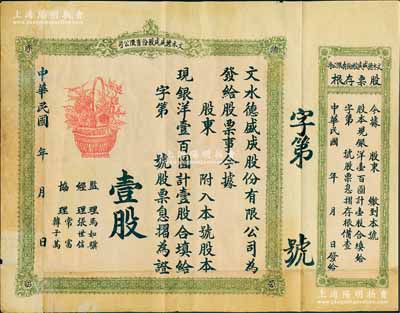 上海陽明拍賣
文水德盛庆股份有限公司
德
文水德盛庆股份有限公司為
發給股票事今據
股東 附入本號股本
現銀洋壹百圓計壹股合填給
字第 號股票息摺為證
壹股
監理 馬如驥
經理 張世信
協理 常富
韓子萬
中華民國 年 月 日
字第 號
文水德盛庆股份有限公司
股票存根
今據 股東 繳到本號
股本現銀洋壹百圓計壹股合填給
字第 號股票息摺存根備查
中華民國 年 月 日發給
上海陽明拍賣